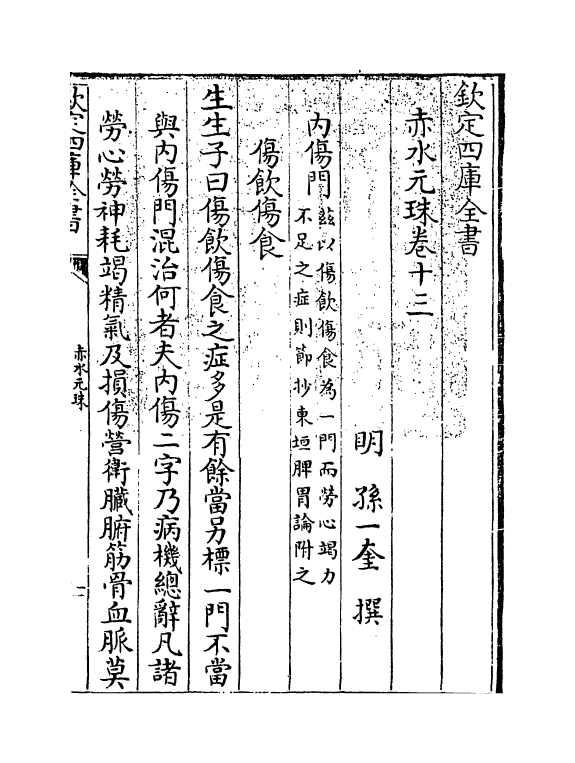 欽定四庫全書
赤水元珠卷十三
明 孫一奎 撰
內傷門 茲以傷飲傷食為一門而勞心竭力
不足之症則節抄東垣脾胃論附之
傷飲傷食
生生子曰傷飲傷食之症多是有餘當另標一門不當
與內傷門混治何者夫內傷二字乃病機總辭凡諸
勞心勞神耗竭精氣及損傷營衛臟腑筋骨血脈莫
欽定四庫全書
赤水元珠